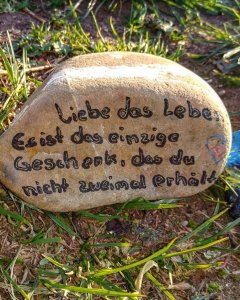 Liebe das Leben
Es ist das einzige
Geschenk, das du
nicht zweimal erhält